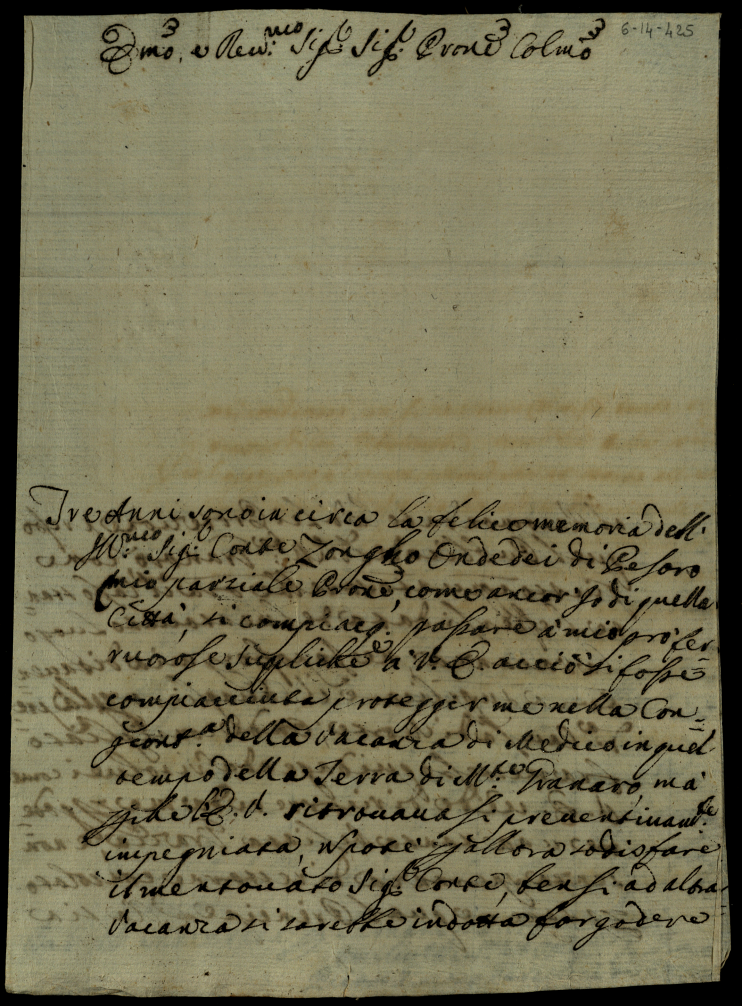 6-14-425
Emo, e Reu.mo Sig.r Sig.r Prone Colmo
Tre Anni sono in circa la felice memoria dell'
Ill.mo Sig.r Conte Zongho Ondedei di Pesaro
mio parziale Prone, come ancor Io di quella
Città, si compiacq. passare à mio prò fer=
uorose suppliche à V. E. acciò si fosse
compiacciuta protegger me nella Con=
giont.a della Vacanza di Medico in quel
tempo della Terra di M.te Granaro, mà
giche E. V. ritrouauasi preuentiuam.te
impegniata, n potè allora sodisfare
il mentouato Sig.r Conte, bensi ad altra
Vacanza si sarebbe indotta far godere